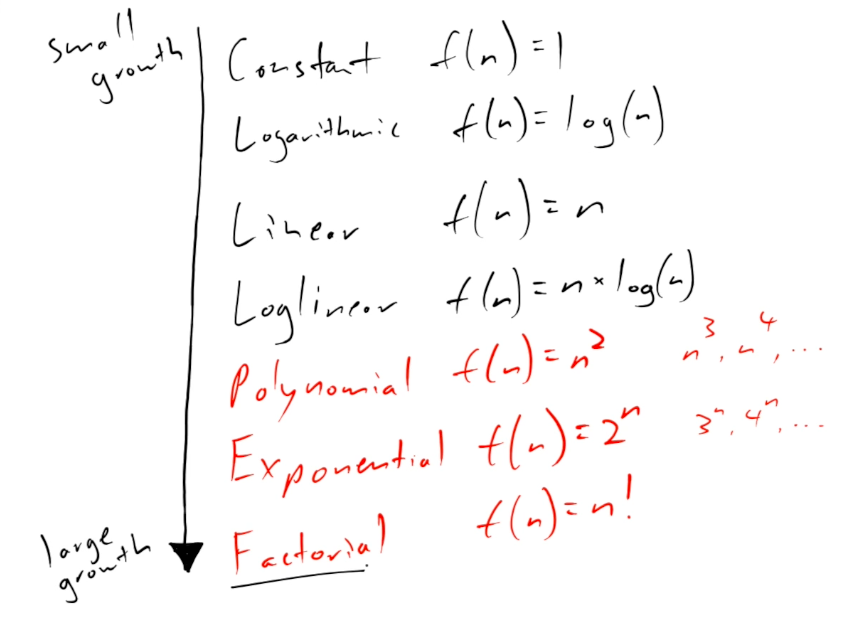 small growth
Constant f(n) = 1
Logarithmic f(n) = log(n)
Linear f(n) = n
Loglinear f(n) = n * log(n)
Polynomial f(n) = n² n³, n⁴, ...
Exponential f(n) = 2ⁿ 3ⁿ, 4ⁿ, ...
Factorial f(n) = n!
large growth